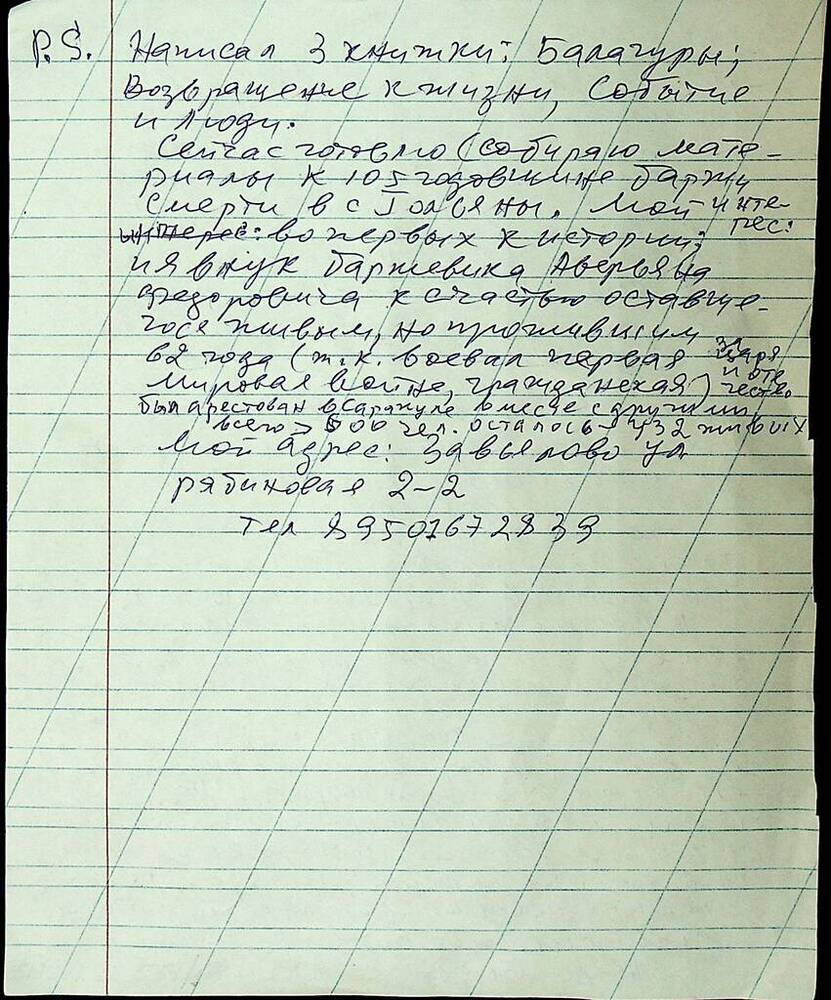 P.S. Написал 3 книжки: Балагуры;
Возвращение к жизни, Событие
и люди.
Сейчас готовлю (собираю мате-
риалы к 105 годовщине баржи
смерти в с Гольяны. Мой инте-
рес:
интерес: во первых к истории;
и я внук баржевика Аверьяна
Федоровича к счастью оставше-
гося живым, но прожившим
62 года (т.к. воевал первая за царя
и оте
мировая война, гражданская) чество
был арестован в Сарапуле вместе с другими,
всего > 500 чел. осталось 432 живых
Мой адрес: Завьялово ул
рябиновая 2-2
тел 89501672839